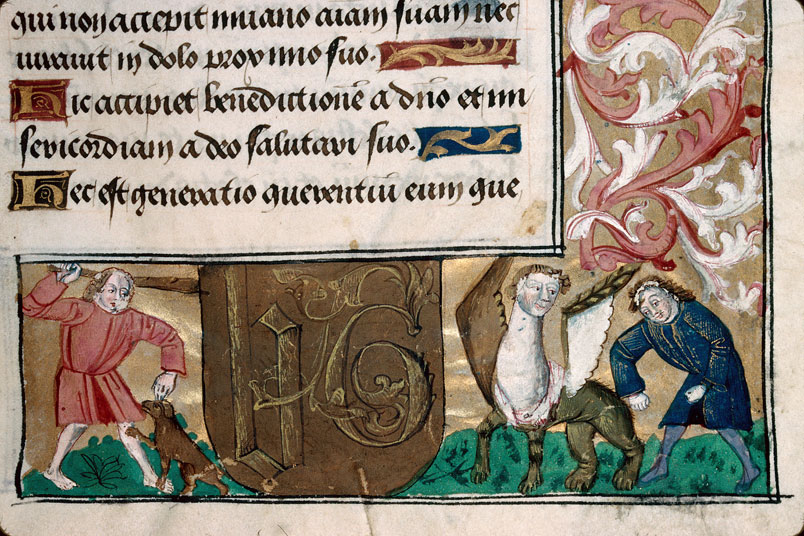 qui non accepit in vano aīam suam nec
iuravit in dolo proximo suo.
Hic accipiet benedictionē a dn̄o et mi
sericordiam a deo salutari suo.
Hec est generatio querentiū eum que